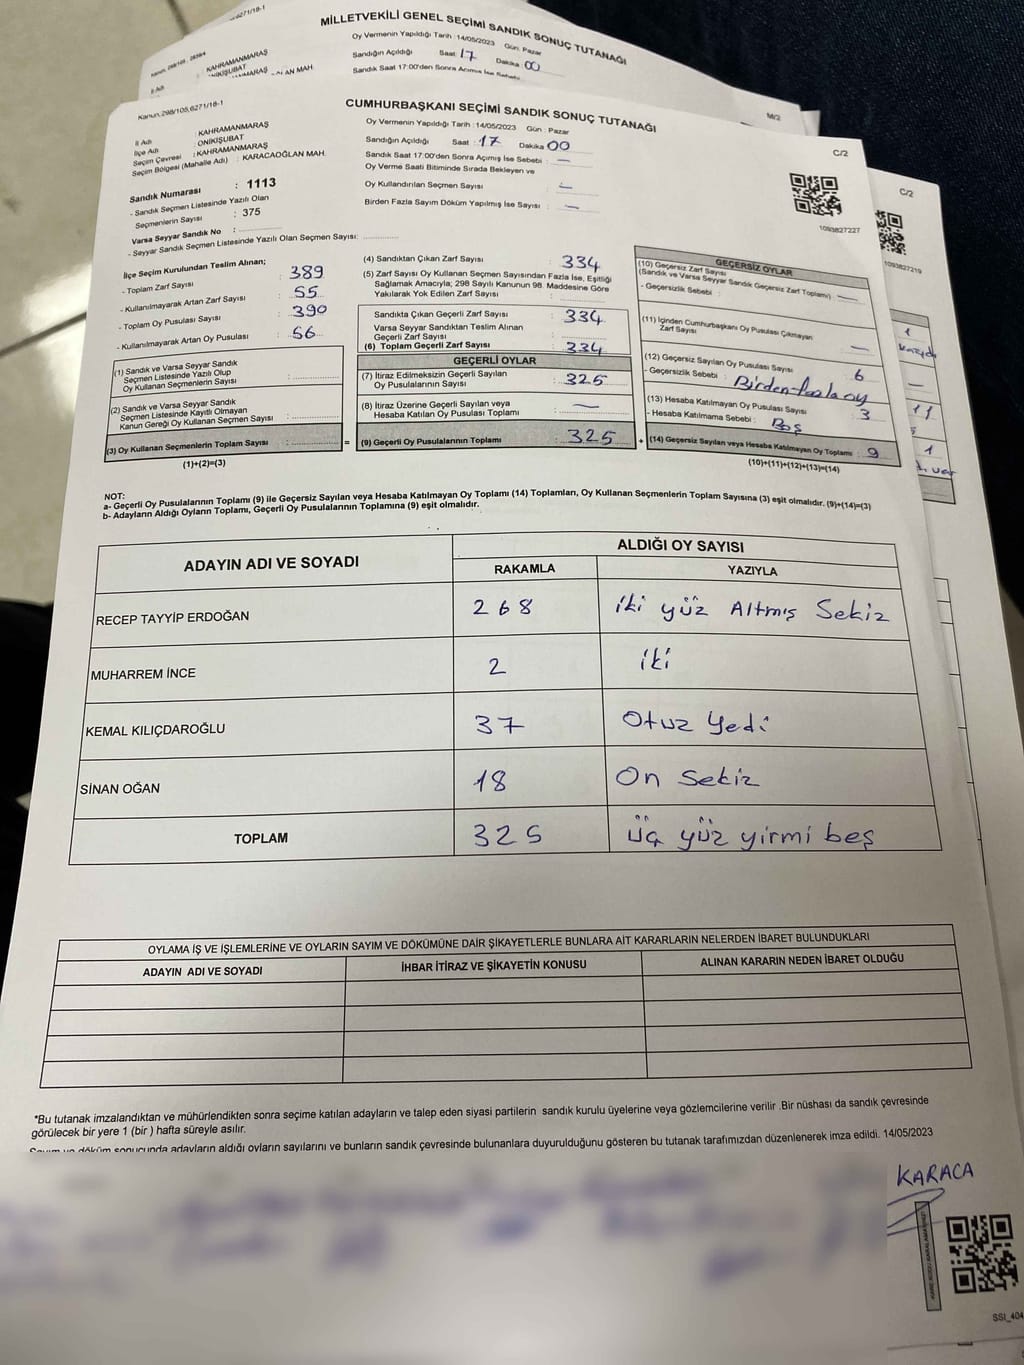 6271/18-1
MİLLETVEKİLİ GENEL SEÇİMİ SANDIK SONUÇ TUTANAĞI
Oy Vermenin Yapıldığı Tarih : 14/05/2023 Gün: Pazar
Sandığın Açıldığı Saat : 17 Dakika 00
KAHRAMANMARAŞ
ONİKİŞUBAT
İl Adı
M/2
Kanun.298/105,6271/18-1
CUMHURBAŞKANI SEÇİMİ SANDIK SONUÇ TUTANAĞI
C/2
İl Adı : KAHRAMANMARAŞ
İlçe Adı : ONİKİŞUBAT
Seçim Çevresi : KAHRAMANMARAŞ
Seçim Bölgesi (Mahalle Adı) : KARACAOĞLAN MAH.
Oy Vermenin Yapıldığı Tarih : 14/05/2023 Gün : Pazar
Sandığın Açıldığı Saat : 17 Dakika 00
Sandık Saat 17:00'den Sonra Açımış İse Sebebi : —
Oy Verme Saati Bitiminde Sırada Bekleyen ve
Oy Kullandırılan Seçmen Sayısı : —
Birden Fazla Sayım Döküm Yapılmış İse Sayısı : —
1093827227
Sandık Numarası : 1113
- Sandık Seçmen Listesinde Yazılı Olan
Seçmenlerin Sayısı : 375
Varsa Seyyar Sandık No :
- Seyyar Sandık Seçmen Listesinde Yazılı Olan Seçmen Sayısı:
İlçe Seçim Kurulundan Teslim Alınan;
- Toplam Zarf Sayısı : 389
- Kullanılmayarak Artan Zarf Sayısı : 55
- Toplam Oy Pusulası Sayısı : 390
- Kullanılmayarak Artan Oy Pusulası : 56
(1) Sandık ve Varsa Seyyar Sandık
Seçmen Listesinde Yazılı Olup
Oy Kullanan Seçmenlerin Sayısı :
(2) Sandık ve Varsa Seyyar Sandık
Seçmen Listesinde Kayıtlı Olmayan
Kanun Gereği Oy Kullanan Seçmen Sayısı :
(3) Oy Kullanan Seçmenlerin Toplam Sayısı : =
(1)+(2)=(3)
(4) Sandıktan Çıkan Zarf Sayısı : 334
(5) Zarf Sayısı Oy Kullanan Seçmen Sayısından Fazla İse, Eşitliği
Sağlamak Amacıyla; 298 Sayılı Kanunun 98. Maddesine Göre
Yakılarak Yok Edilen Zarf Sayısı :
Sandıkta Çıkan Geçerli Zarf Sayısı : 334
Varsa Seyyar Sandıktan Teslim Alınan
Geçerli Zarf Sayısı :
(6) Toplam Geçerli Zarf Sayısı : 334
GEÇERLİ OYLAR
(7) İtiraz Edilmeksizin Geçerli Sayılan
Oy Pusulalarının Sayısı : 325
(8) İtiraz Üzerine Geçerli Sayılan veya
Hesaba Katılan Oy Pusulası Toplamı : —
(9) Geçerli Oy Pusulalarının Toplamı : 325 +
GEÇERSİZ OYLAR
(10) Geçersiz Zarf Sayısı
(Sandık ve Varsa Seyyar Sandık Geçersiz Zarf Toplamı) : —
- Geçersizlik Sebebi :
(11) İçinden Cumhurbaşkanı Oy Pusulası Çıkmayan
Zarf Sayısı : —
(12) Geçersiz Sayılan Oy Pusulası Sayısı : 6
- Geçersizlik Sebebi : Birden fazla oy
(13) Hesaba Katılmayan Oy Pusulası Sayısı : 3
- Hesaba Katılmama Sebebi : Boş
(14) Geçersiz Sayılan veya Hesaba Katılmayan Oy Toplamı : 9
(10)+(11)+(12)+(13)=(14)
C/2
1093827219
NOT:
a- Geçerli Oy Pusulalarının Toplamı (9) ile Geçersiz Sayılan veya Hesaba Katılmayan Oy Toplamı (14) Toplamları, Oy Kullanan Seçmenlerin Toplam Sayısına (3) eşit olmalıdır. (9)+(14)=(3)
b- Adayların Aldığı Oyların Toplamı, Geçerli Oy Pusulalarının Toplamına (9) eşit olmalıdır.
ADAYIN ADI VE SOYADI ALDIĞI OY SAYISI
RAKAMLA YAZIYLA
RECEP TAYYİP ERDOĞAN 268 iki yüz Altmış Sekiz
MUHARREM İNCE 2 iki
KEMAL KILIÇDAROĞLU 37 Otuz Yedi
SİNAN OĞAN 18 On Sekiz
TOPLAM 325 üç yüz yirmi beş
OYLAMA İŞ VE İŞLEMLERİNE VE OYLARIN SAYIM VE DÖKÜMÜNE DAİR ŞİKAYETLERLE BUNLARA AİT KARARLARIN NELERDEN İBARET BULUNDUKLARI
ADAYIN ADI VE SOYADI İHBAR İTİRAZ VE ŞİKAYETİN KONUSU ALINAN KARARIN NEDEN İBARET OLDUĞU
*Bu tutanak imzalandıktan ve mühürlendikten sonra seçime katılan adayların ve talep eden siyasi partilerin sandık kurulu üyelerine veya gözlemcilerine verilir .Bir nüshası da sandık çevresinde
görülecek bir yere 1 (bir ) hafta süreyle asılır.
Sayım ve döküm sonucunda adayların aldığı oyların sayılarını ve bunların sandık çevresinde bulunanlara duyurulduğunu gösteren bu tutanak tarafımızdan düzenlenerek imza edildi. 14/05/2023
KARACA
SSI_404